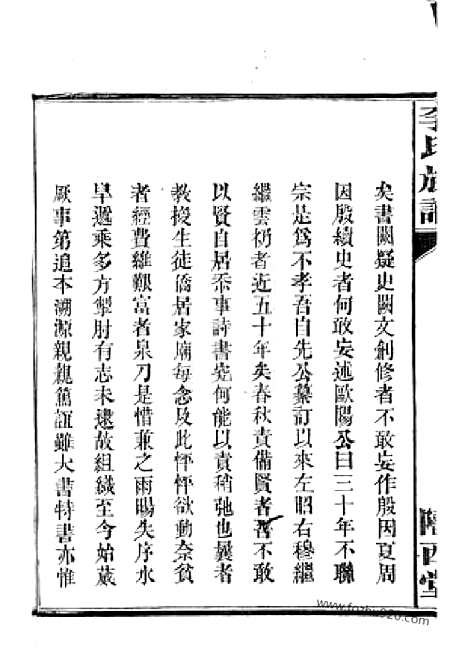 李氏族譜
隴西堂
矣書闕疑史闕文創修者不敢妄作殷因夏周
因殷續史者何敢妄述歐陽公曰三十年不聯
宗是為不孝吾自先公纂訂以來左昭右穆繼
繼雲礽者近五十年矣春秋責備賢者吾不敢
以賢自居忝事詩書究何能以責稍弛也曩者
教授生徒僑居家廟每念及此怦怦欲動奈貧
者經費維艱富者泉刀是惜兼之雨暘失序水
旱遞乘多方掣肘有志未逮故組織至今始蕆
厥事第追本溯源親親篤誼雖大書特書亦惟
www.fozhu920.com